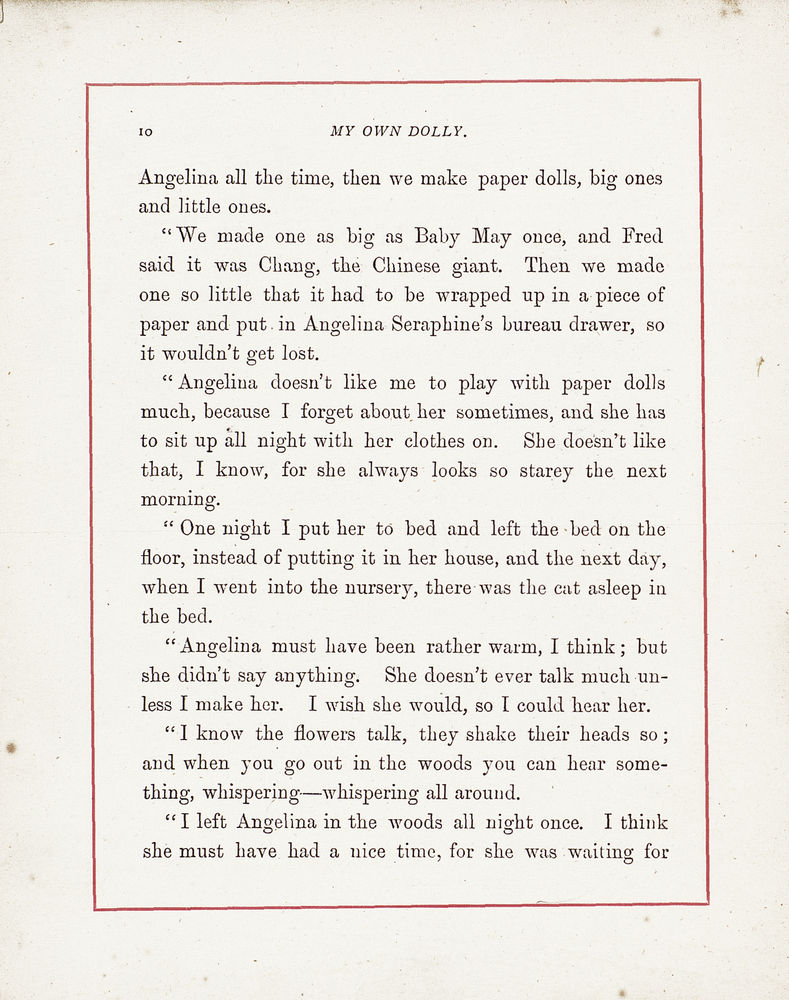 10
MY OWN DOLLY.
Angelina all the time, then we make paper dolls, big ones
and little ones.
“We made one as big as Baby May once, and Fred
said it was Chang, the Chinese giant. Then we made
one so little that it had to be wrapped up in a piece of
paper and put in Angelina Seraphine’s bureau drawer, so
it wouldn’t get lost.
“Angelina doesn’t like me to play with paper dolls
much, because I forget about her sometimes, and she has
to sit up all night with her clothes on. She doesn’t like
that, I know, for she always looks so starey the next
morning.
“One night I put her to bed and left the bed on the
floor, instead of putting it in her house, and the next day,
when I went into the nursery, there was the cat asleep in
the bed.
“Angelina must have been rather warm, I think; but
she didn’t say anything. She doesn’t ever talk much un-
less I make her. I wish she would, so I could hear her.
“I know the flowers talk, they shake their heads so;
and when you go out in the woods you can hear some-
thing, whispering—whispering all around.
“I left Angelina in the woods all night once. I think
she must have had a nice time, for she was waiting for